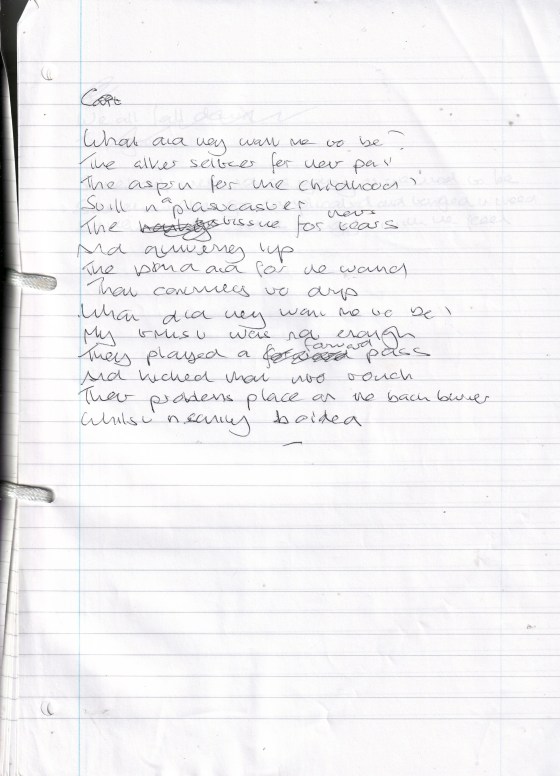 Care
What did they want me to be?
The alker seltzer for their pain
The asprin for the childhood?
Still in a plastcaster
The tissue for their tears
And quivering lip
The band aid for the wound
That continues to drip
What did they want me to be?
My trust was not enough
They played a forward pass
And kicked that into touch
Their problems place on the back burner
Whilst nearly boiled